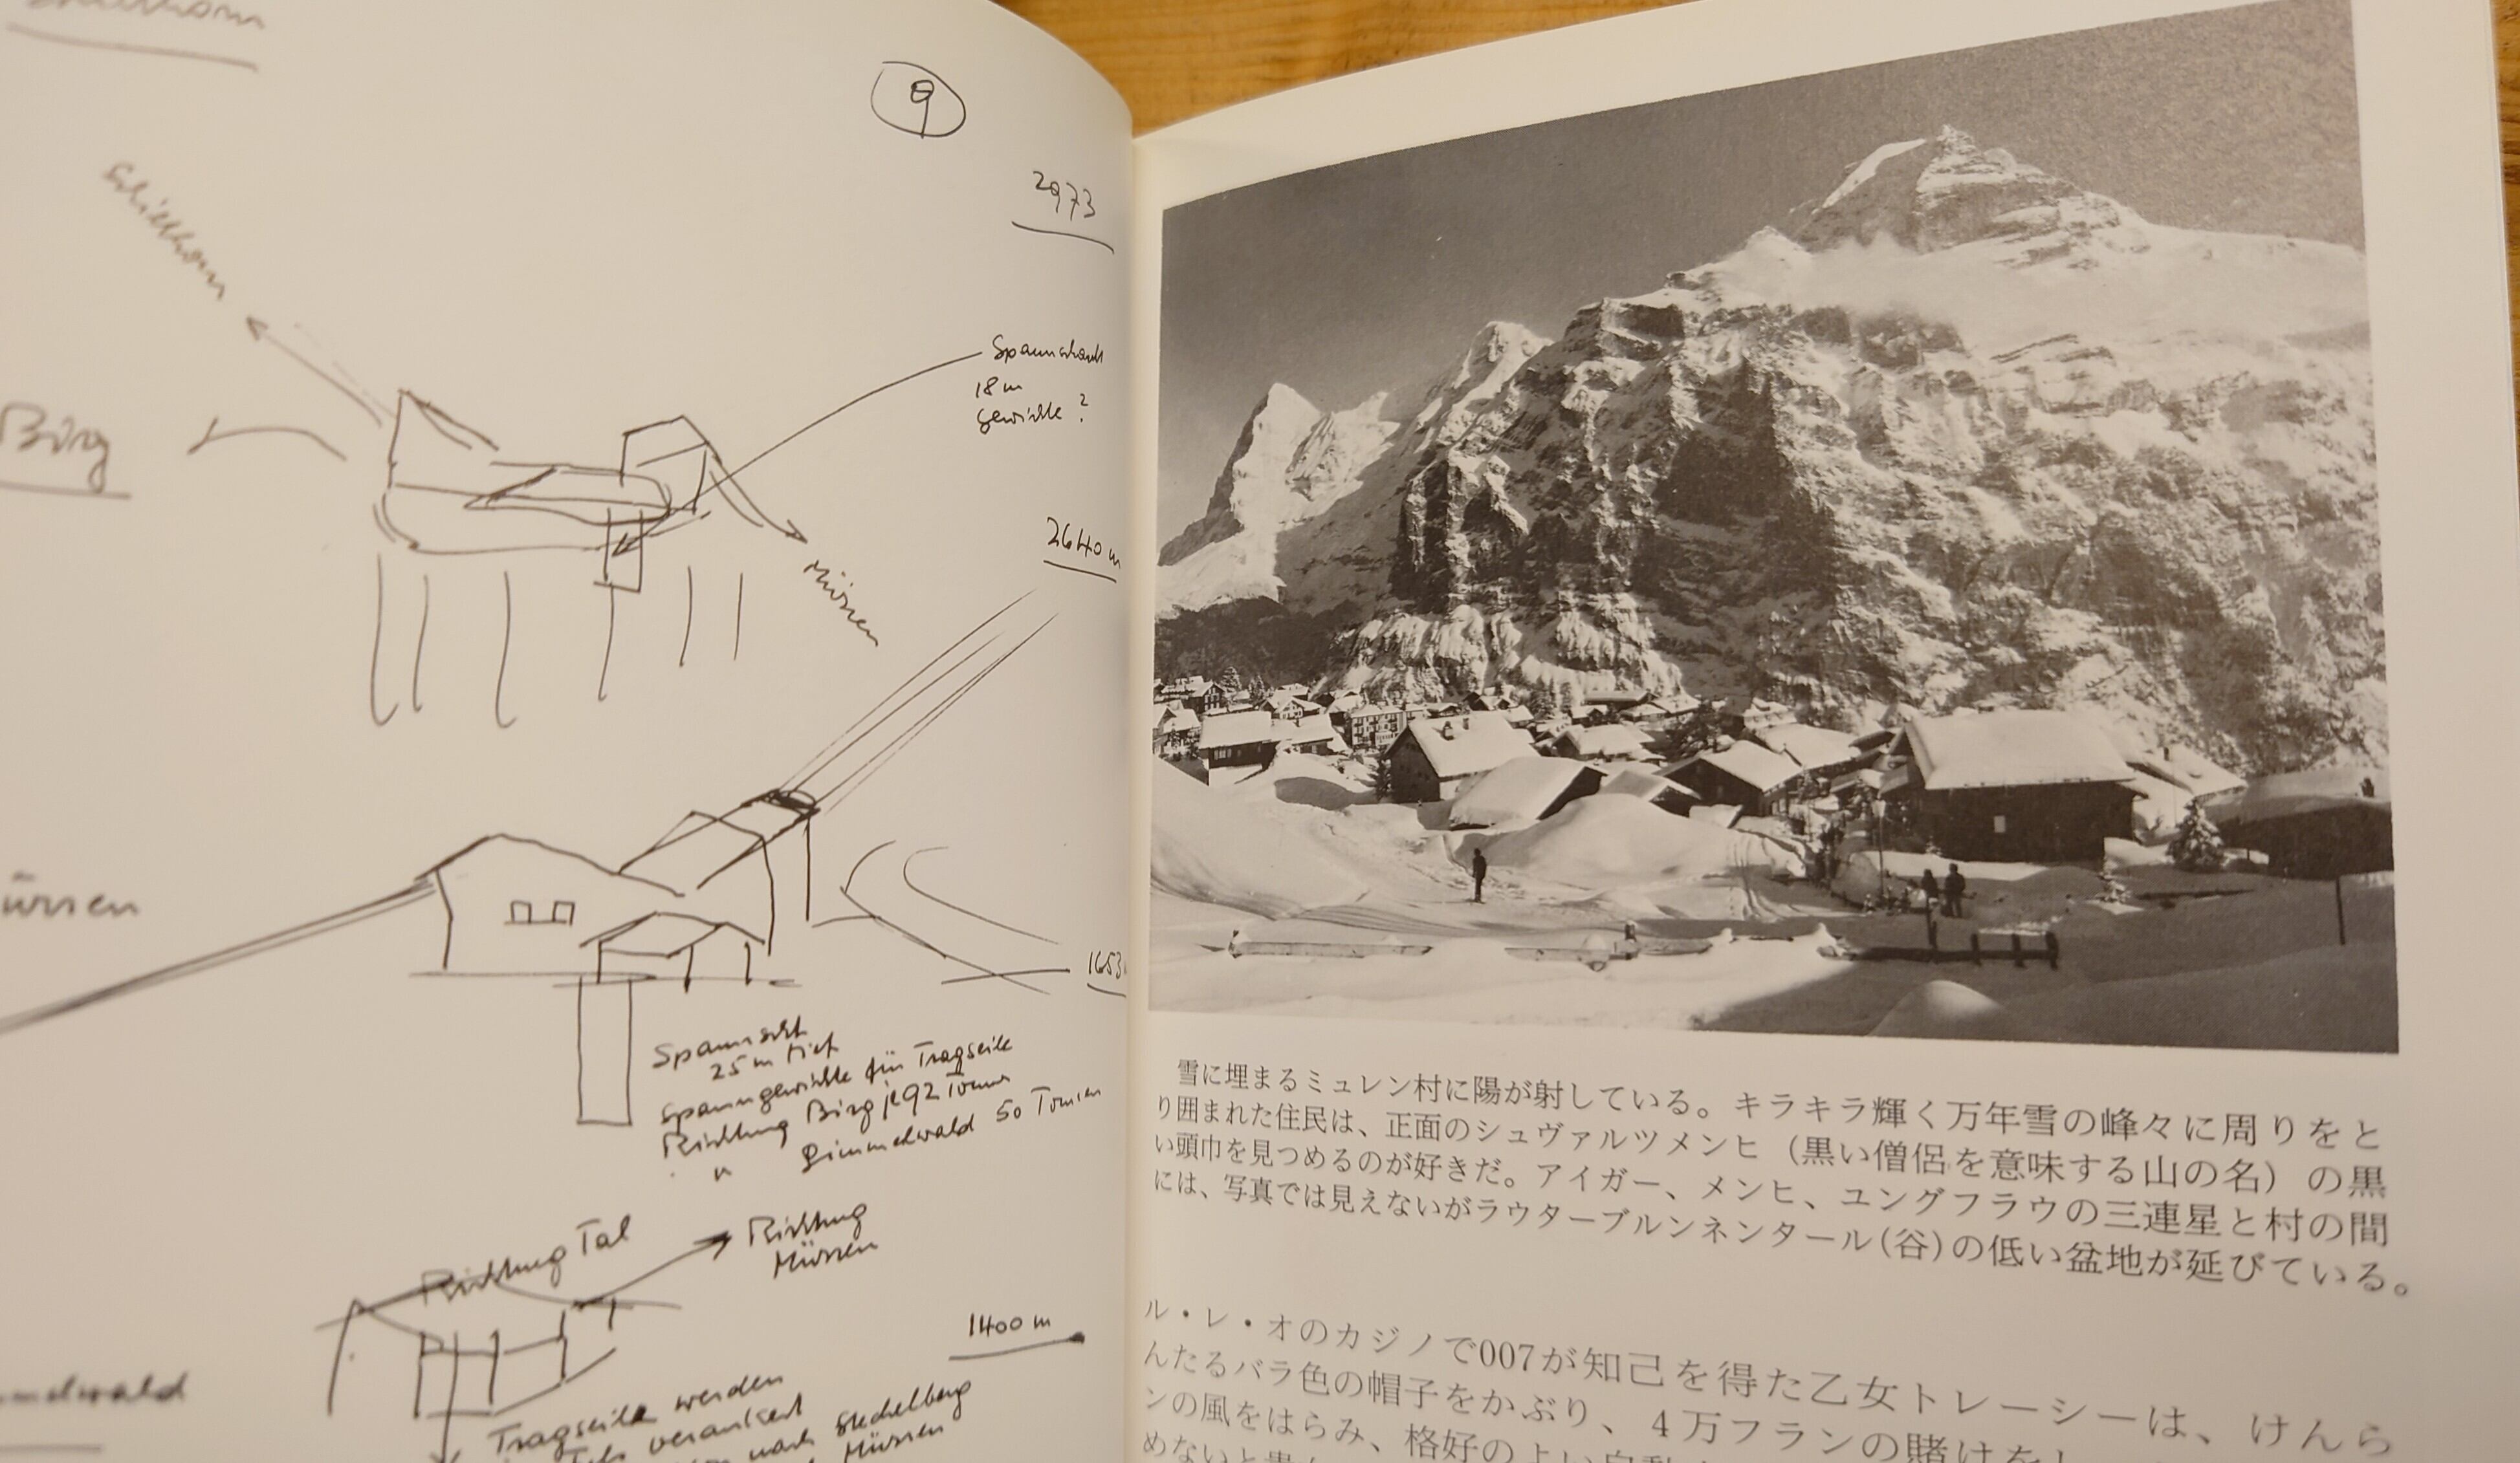 Schilthorn
9
2973
Schilthorn
Spannschacht
18 m
Gewichte ?
Birg
2640 m
Mürren
ürren
1653
25 m tief
Spanngewichte für Tragseile
Richtung Birg je 92 Tonnen
" Gimmelwald 50 Tonnen
Richtung Tal
Richtung
Mürren
1400 m
melwald
Tragseile werden
verankert
nach Stechelberg
Mürren
雪に埋まるミュレン村に陽が射している。キラキラ輝く万年雪の峰々に周りをと
り囲まれた住民は、正面のシュヴァルツメンヒ（黒い僧侶を意味する山の名）の黒
い頭巾を見つめるのが好きだ。アイガー、メンヒ、ユングフラウの三連星と村の間
には、写真では見えないがラウターブルンネンタール(谷)の低い盆地が延びている。
ル・レ・オのカジノで007が知己を得た乙女トレーシーは、けんら
んたるバラ色の帽子をかぶり、4万フランの賭けを
ンの風をはらみ、格好のよい自動
めないと